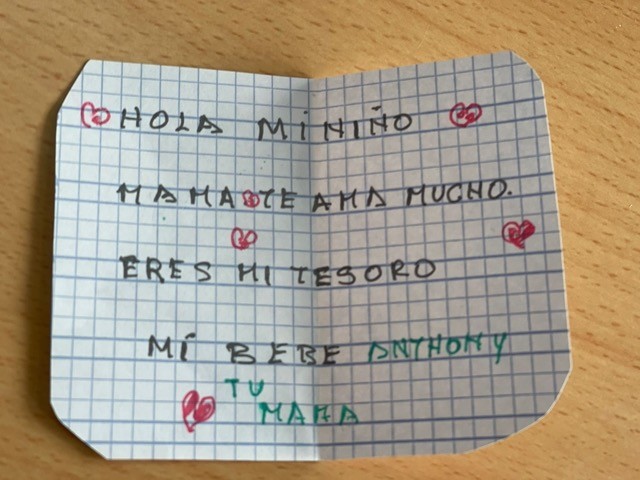 HOLA Mi NIÑO
MAMA TE AMA MUCHO.
ERES MI TESORO
MÍ BEBE ANTHONY
TU
MAMA